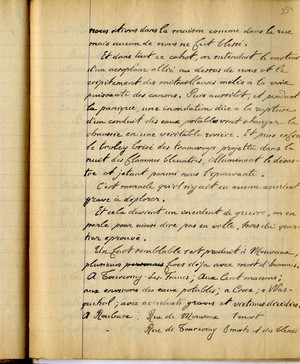 nous étions dans la maison comme dans la rue
mais aucun de nous ne fut blessé.
Et dans tout ce cahot, on entendait le moteur
d'un aéroplane allié au dessus de nous et le
crépitement des mitrailleuses mêlés à la voix
puissante des canons. Puis aussitôt, et pendant
la panique, une inondation due à la rupture
d'un conduit des eaux potables vient changer la
chaussée en une véritable rivière. Et puis enfin
le troley brisé des tramways projette dans la
nuit des flammes bleuâtres, illuminant le désas-
tre et jetant parmi nous l'épouvante.
C'est miracle qu'il n'y eut eu aucun accident
grave à déplorer.
Et cela devient un incident de guerre, on en
parle pour ainsi dire pas en ville, trop du quar-
tier éprouvé.
Un fait semblable s'est produit à Mouvaux,
plusieurs fois déjà avec mort d'hommes.
A Tourcoing - Les Francs; Aux Cent maisons;
aux environs des eaux potables; à Croix; à Was-
quehal; avec accidents graves et victimes décédées
A Roubaix. Rue de Mouvaux 1 mort
Rue de Tourcoing morts et des blessés